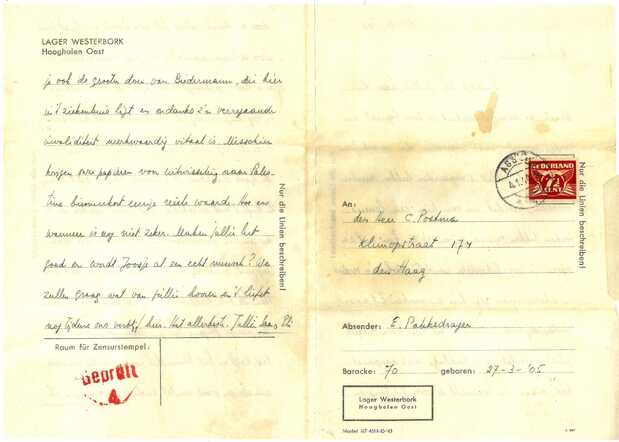 LAGER WESTERBORK
Hooghalen Oost
je ook de groeten doen van Biedermann, die hier
in 't ziekenhuis ligt en ondanks z'n vergaande
invaliditeit merkwaardig vitaal is. Misschien
krijgen onze papieren van uitwisseling naar Pales-
tina binnenkort eenige reële waarde. Hoe en
wanneer is nog niet zeker. Maken jullie het
goed en wordt Joosje al een echt mensch? We
zullen graag wat van jullie hooren en 't liefst
nog tijdens ons verblijf hier. Het allerbeste. Jullie
Raum für Zensurstempel:
Geprüft
4
Nur die Linien beschreiben!
ASS
4.1.
NEDERLAND
7½
CENT
Nur die Linien beschreiben!
An:
den Heer C. Postma
Klimopstraat 174
den Haag
Absender: E. Pakkedrager
Baracke: 70 geboren: 27-3-'05
Lager Westerbork
Hooghalen Oost